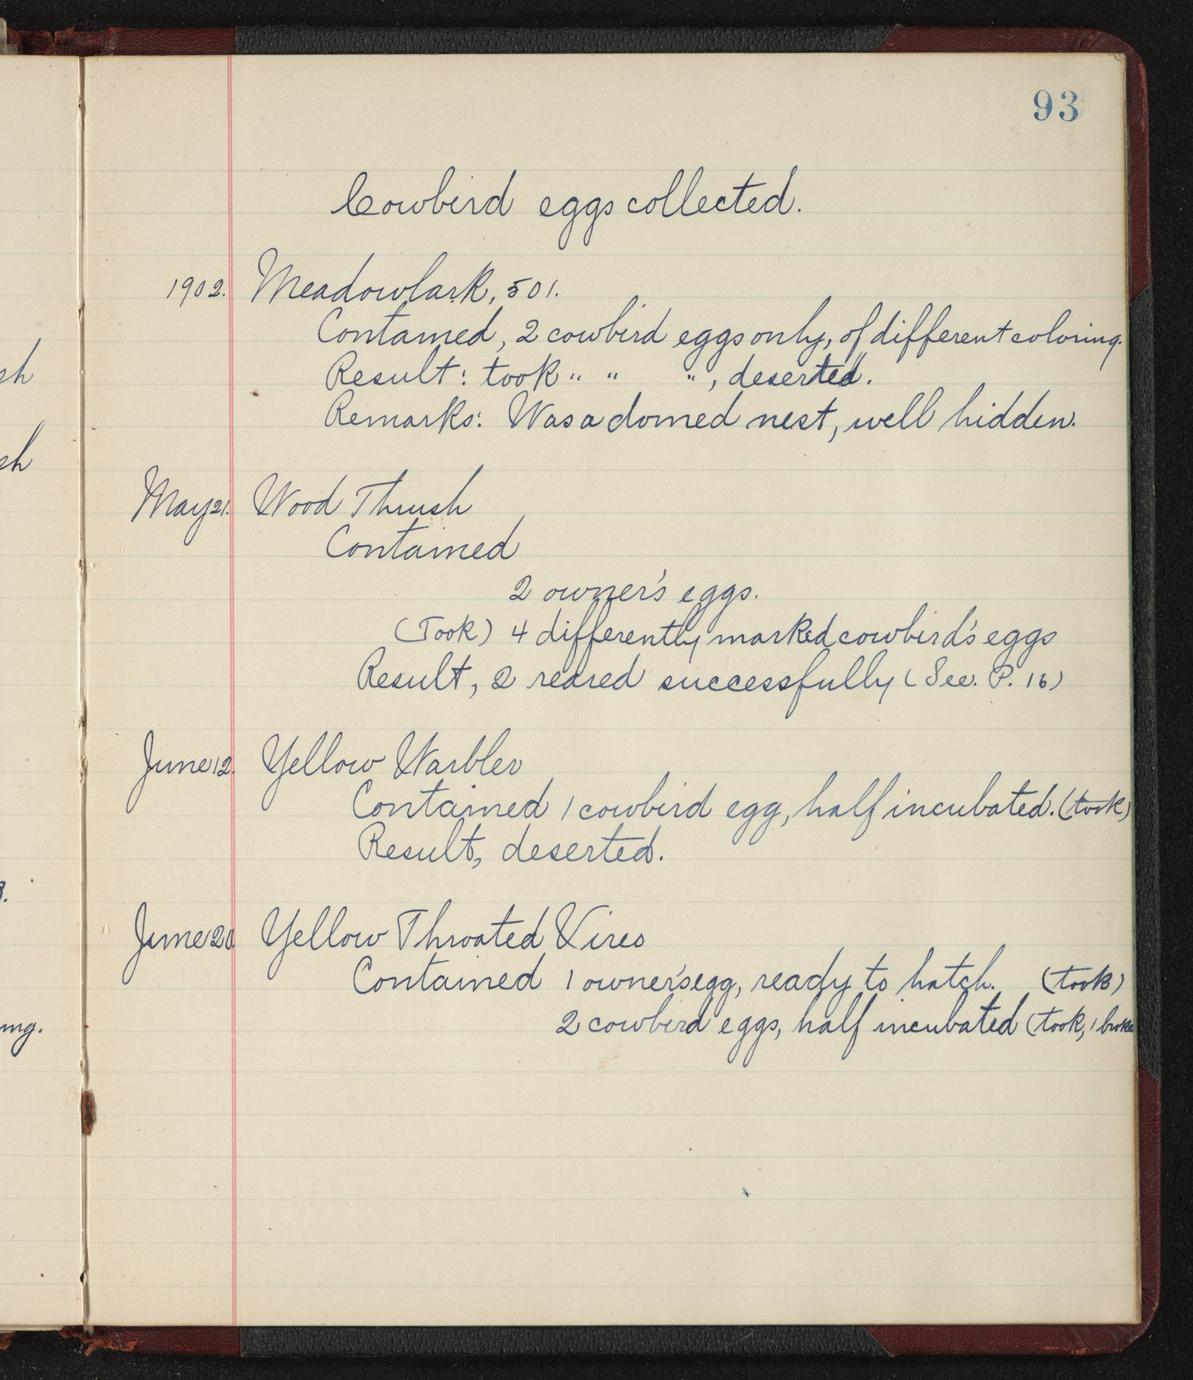 93
Cowbird eggs collected.
1902. Meadowlark, 501.
Contained, 2 cowbird eggs only, of different coloring.
Result: took " " ", deserted.
Remarks: Was a domed nest, well hidden.
May 21. Wood Thrush
Contained
2 owner's eggs.
(Took) 4 differently marked cowbird's eggs
Result, 2 reared successfully (See. P. 16)
June 12. Yellow Warbler
Contained 1 cowbird egg, half incubated. (took)
Result, deserted.
June 20 Yellow Throated Vireo
Contained 1 owner's egg, ready to hatch. (took)
2 cowbird eggs, half incubated (took, 1 broke
sh
sh
ing.